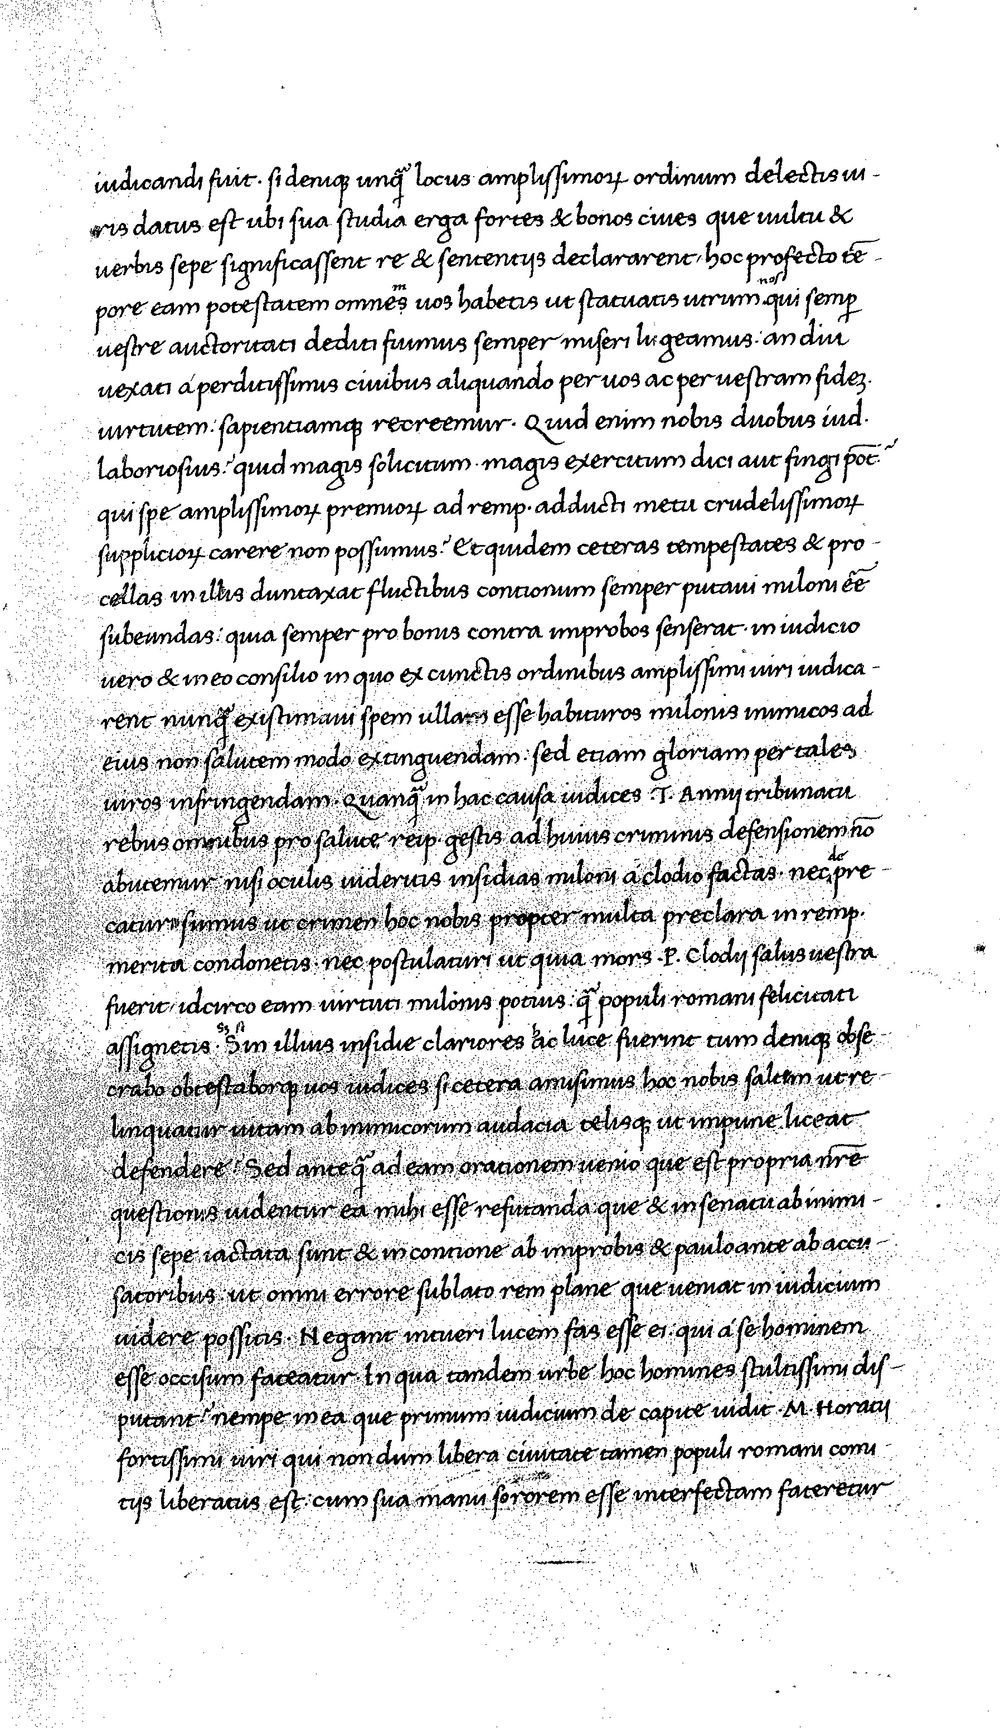 iudicandi fuit. si deniq; unq̃ locus amplissimoꝝ ordinum delectis ui-
ris datus est ubi sua studia erga fortes & bonos ciues que uultu &
uerbis sepe significassent re & sententijs declararent, hoc profecto tē-
pore eam potestatem omnem uos habetis ut statuatis utrum nos qui semꝑ
uestre auctoritati dediti fuimus semper miseri lugeamus: an diu
uexati á perditissimis ciuibus aliquando per uos ac per uestram fideꝫ.
uirtutem: sapientiamq; recreemur. Quid enim nobis duobus iud.
laboriosius? quid magis solicitum. magis exercitum dici aut fingi p̄ot̄?
qui spe amplissimoꝝ premioꝝ ad remp. adducti metu crudelissimoꝝ
supplicioꝝ carere non possumus? Et quidem ceteras tempestates & pro-
cellas in illis duntaxat fluctibus contionum semper putaui miloni eē
subeundas: quia semper pro bonis contra improbos senserat. in iudicio
uero & in eo consilio in quo ex cunctis ordinibus amplissimi uiri iudica-
rent nunq̃ existimaui spem ullam esse habituros milonis inimicos ad
eius non salutem modo extinguendam: sed etiam gloriam per tales
uiros infringendam. Quanq̃ in hac causa iudices .T. Annij tribunatu
rebus omnibus pro salute reip. gestis ad huius criminis defensionem nō
abutemur nisi oculis uideritis insidias miloni á clodio factas. nec de pre-
caturi sumus ut crimen hoc nobis propter multa preclara in remp.
merita condonetis. nec postulaturi ut quia mors .P. Clodij salus uestra
fuerit, idcirco eam uirtuti milonis potius: q̃ populi romani felicitati
assignetis. Sin illius insidie clariores hac luce fuerint tum deniq; obse-
crabo obtestaborq; uos iudices si cetera amisimus hoc nobis saltem ut re-
linquatur uitam ab inimicorum audacia telisq; ut impune liceat
defendere? Sed anteq̃ ad eam orationem uenio que est propria nr̄e
questionis uidentur ea mihi esse refutanda que & in senatu ab inimi-
cis sepe iactata sunt & in contione ab improbis & paulo ante ab accu-
satoribus: ut omni errore sublato rem plane que ueniat in iudicium
uidere possitis. Negant intueri lucem fas esse ei: qui á se hominem
esse occisum fateatur. In qua tandem urbe hoc homines stultissimi dis-
putant? nempe in ea que primum iudicium de capite uidit .M. Horatij
fortissimi uiri qui non dum libera ciuitate tamen populi romani comi-
tijs liberatus est: cum sua manu sororem esse interfectam fateretur